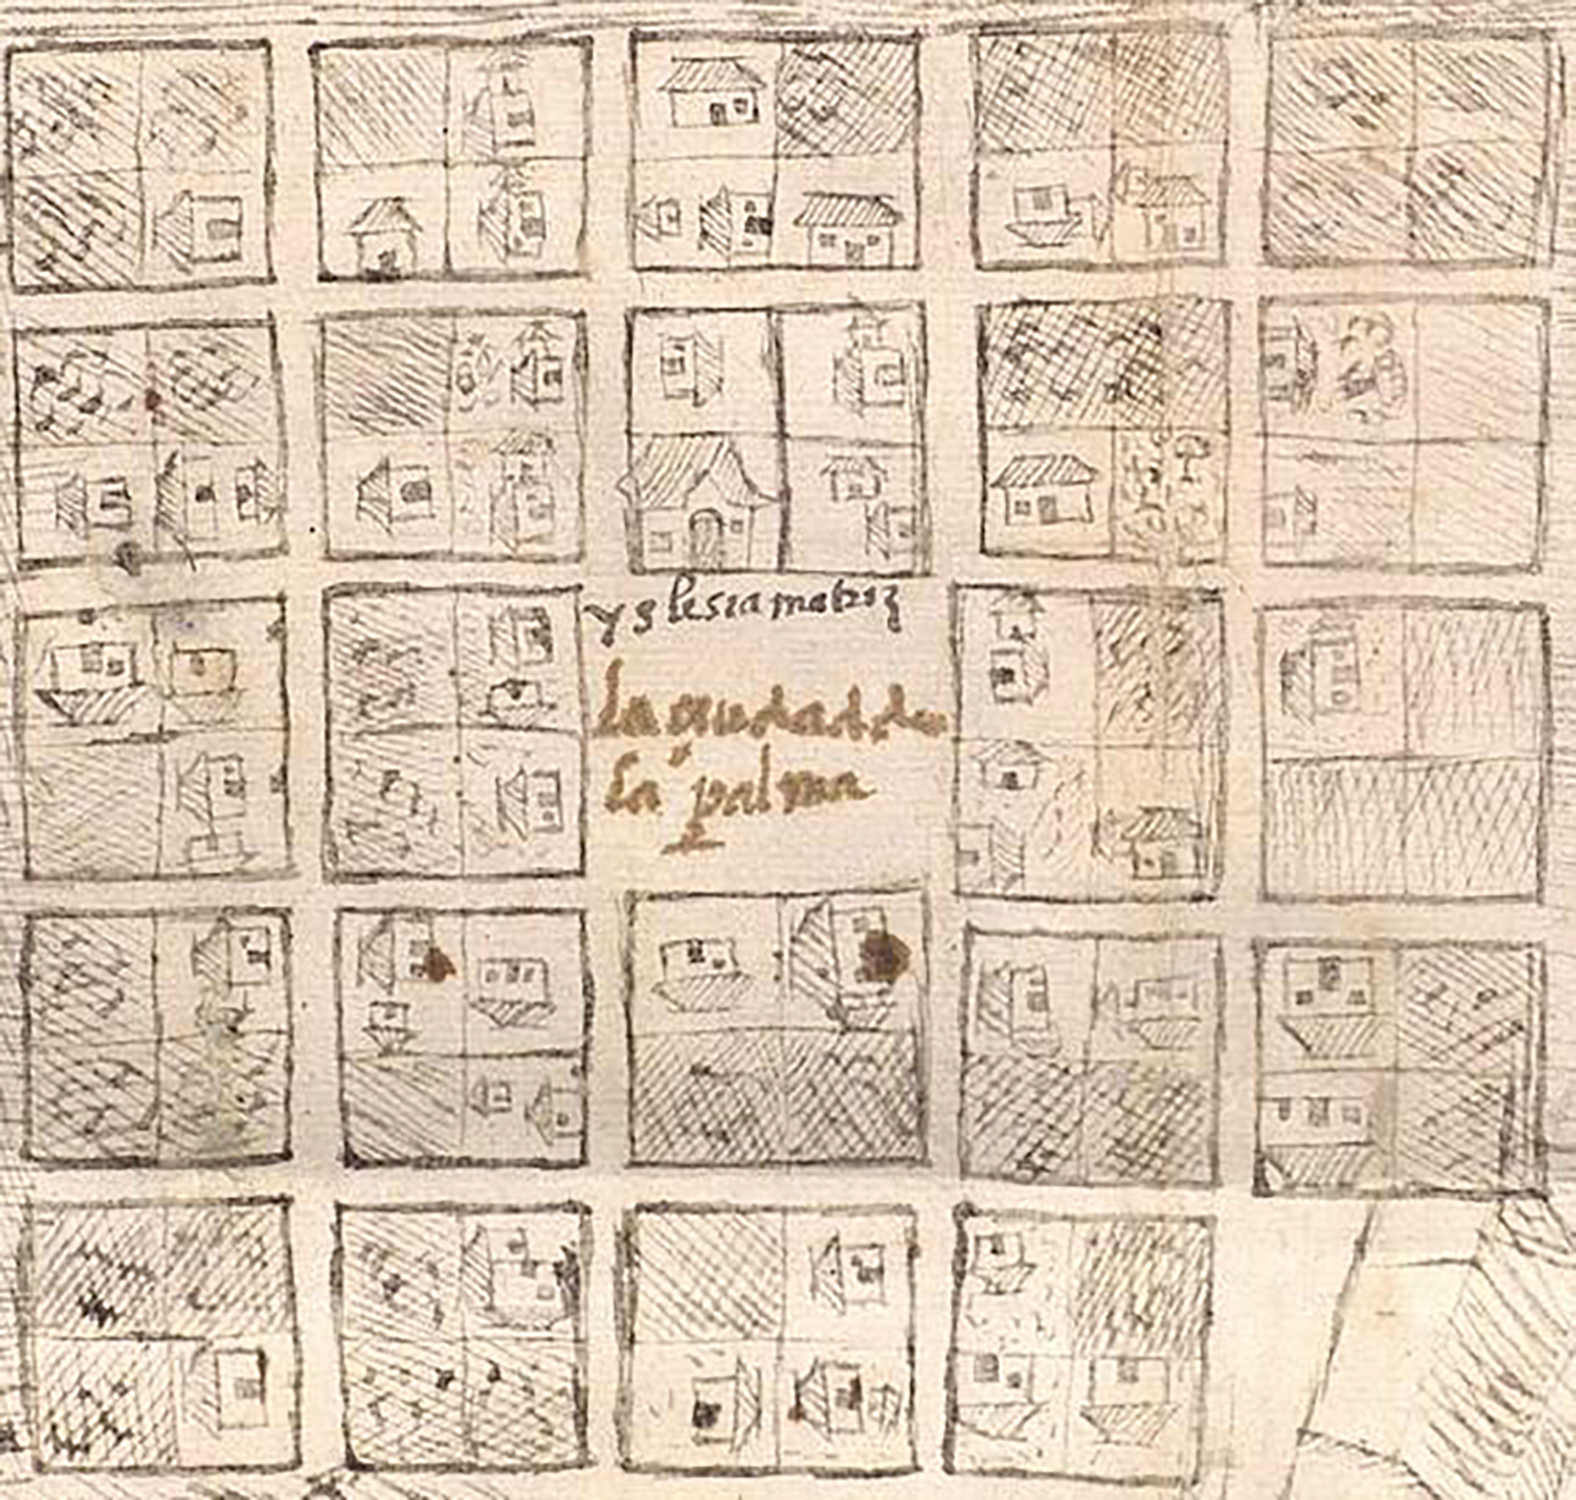 yglesia matriz
la ciudad de
la palma